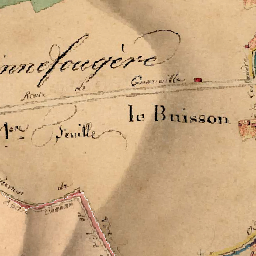 innefougère
Route de Granville
le Buisson
1ère Feuille
de